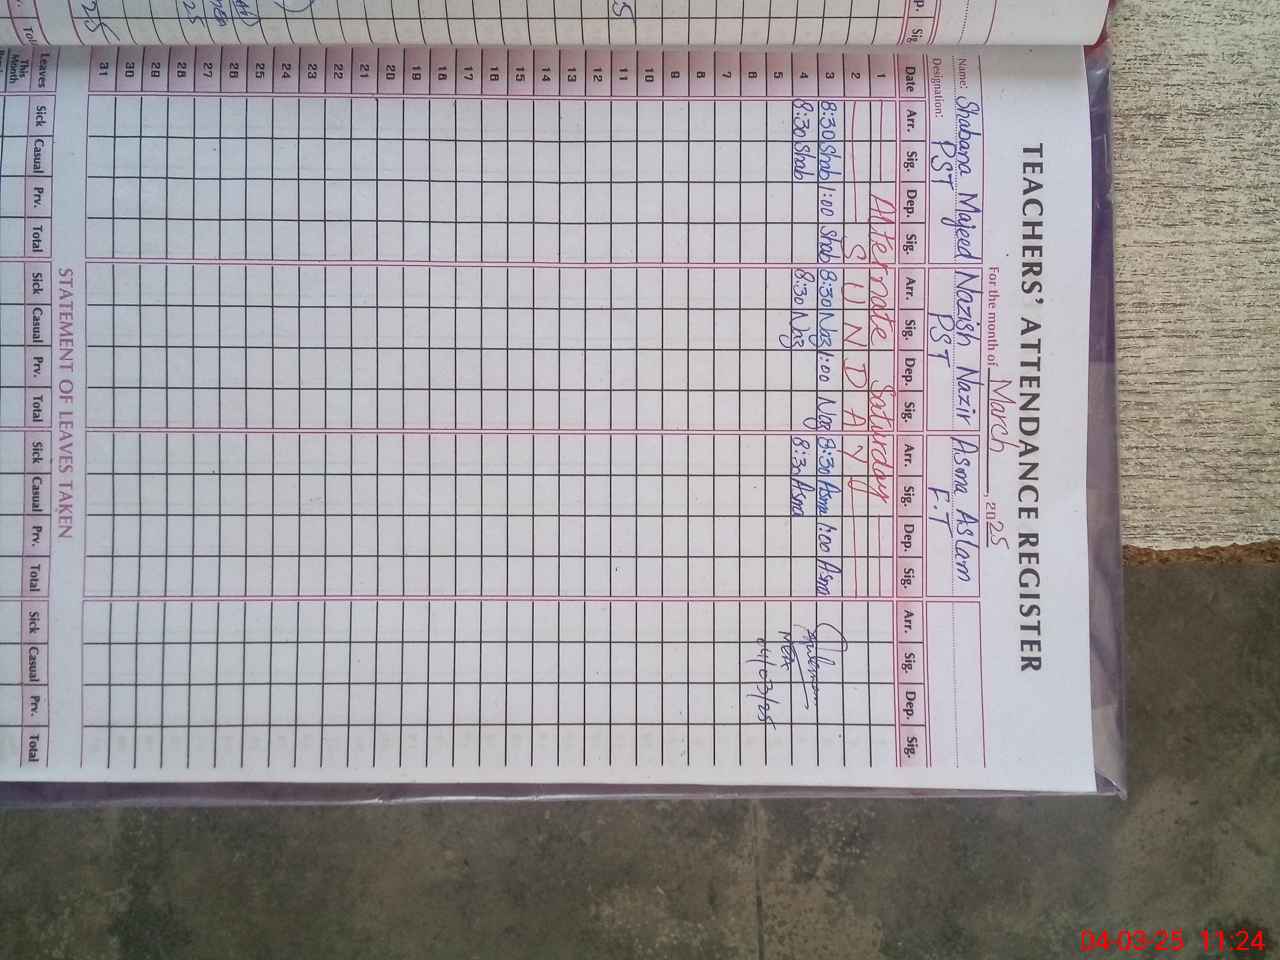 TEACHERS' ATTENDANCE REGISTER
For the month of March, 2025
Name: Shabana Majeed Nazish Nazir Asma Aslam
Designation: PST PST F.T
Date Arr. Sig. Dep. Sig. Arr. Sig. Dep. Sig. Arr. Sig. Dep. Sig. Arr. Sig. Dep. Sig.
1 Alternate Saturday
2 SUNDAY
3 8:30 Shab 1:00 Shab 8:30 Naz 1:00 Naz 8:30 Asma 1:00 Asma
4 8:30 Shab 8:30 Naz 8:30 Asma
MEA
5 04/03/25
6
7
8
9
10
11
12
13
14
15
16
17
18
19
20
21
22
23
24
25
26
27
28
29
30
31
STATEMENT OF LEAVES TAKEN
Leaves Sick Casual Prv. Total Sick Casual Prv. Total Sick Casual Prv. Total Sick Casual Prv. Total
This Month
04-03-25 11:24